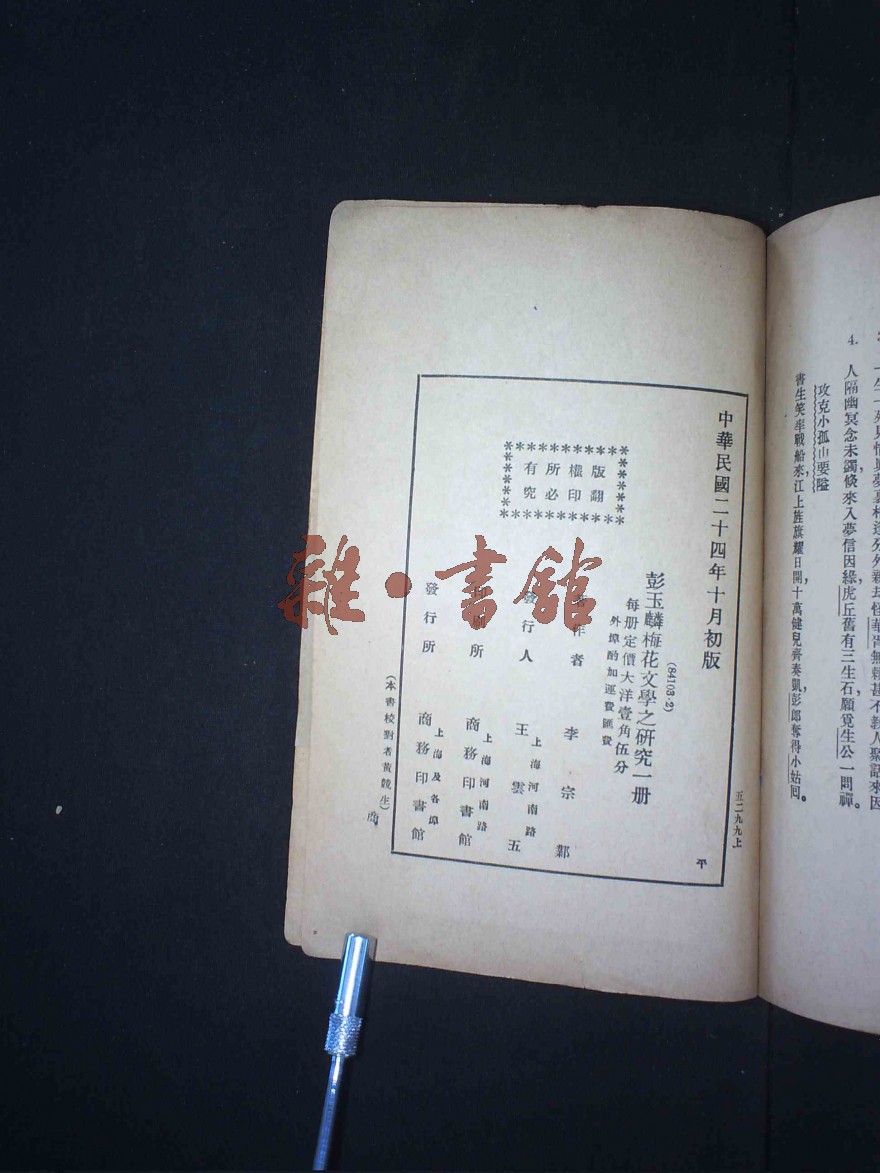 4.
人隔幽冥念未蠲，倏來入夢信因緣，虎丘舊有三生石，願覓生公一問禪。
攻克小孤山要隘
書生笑率戰船來，江上旌旗耀日開，十萬健兒齊奏凱，彭郎奪得小姑回。
五二九九上
中華民國二十四年十月初版
平
(84103·2)
彭玉麟梅花文學之研究一册
每册定價大洋壹角伍分
外埠酌加運費匯費
版權所有
翻印必究
著作者 李宗鄴
發行人 王雲五
上海河南路
印刷所 商務印書館
上海河南路
發行所 商務印書館
上海及各埠
(本書校對者黃競生)
商
雜·書館